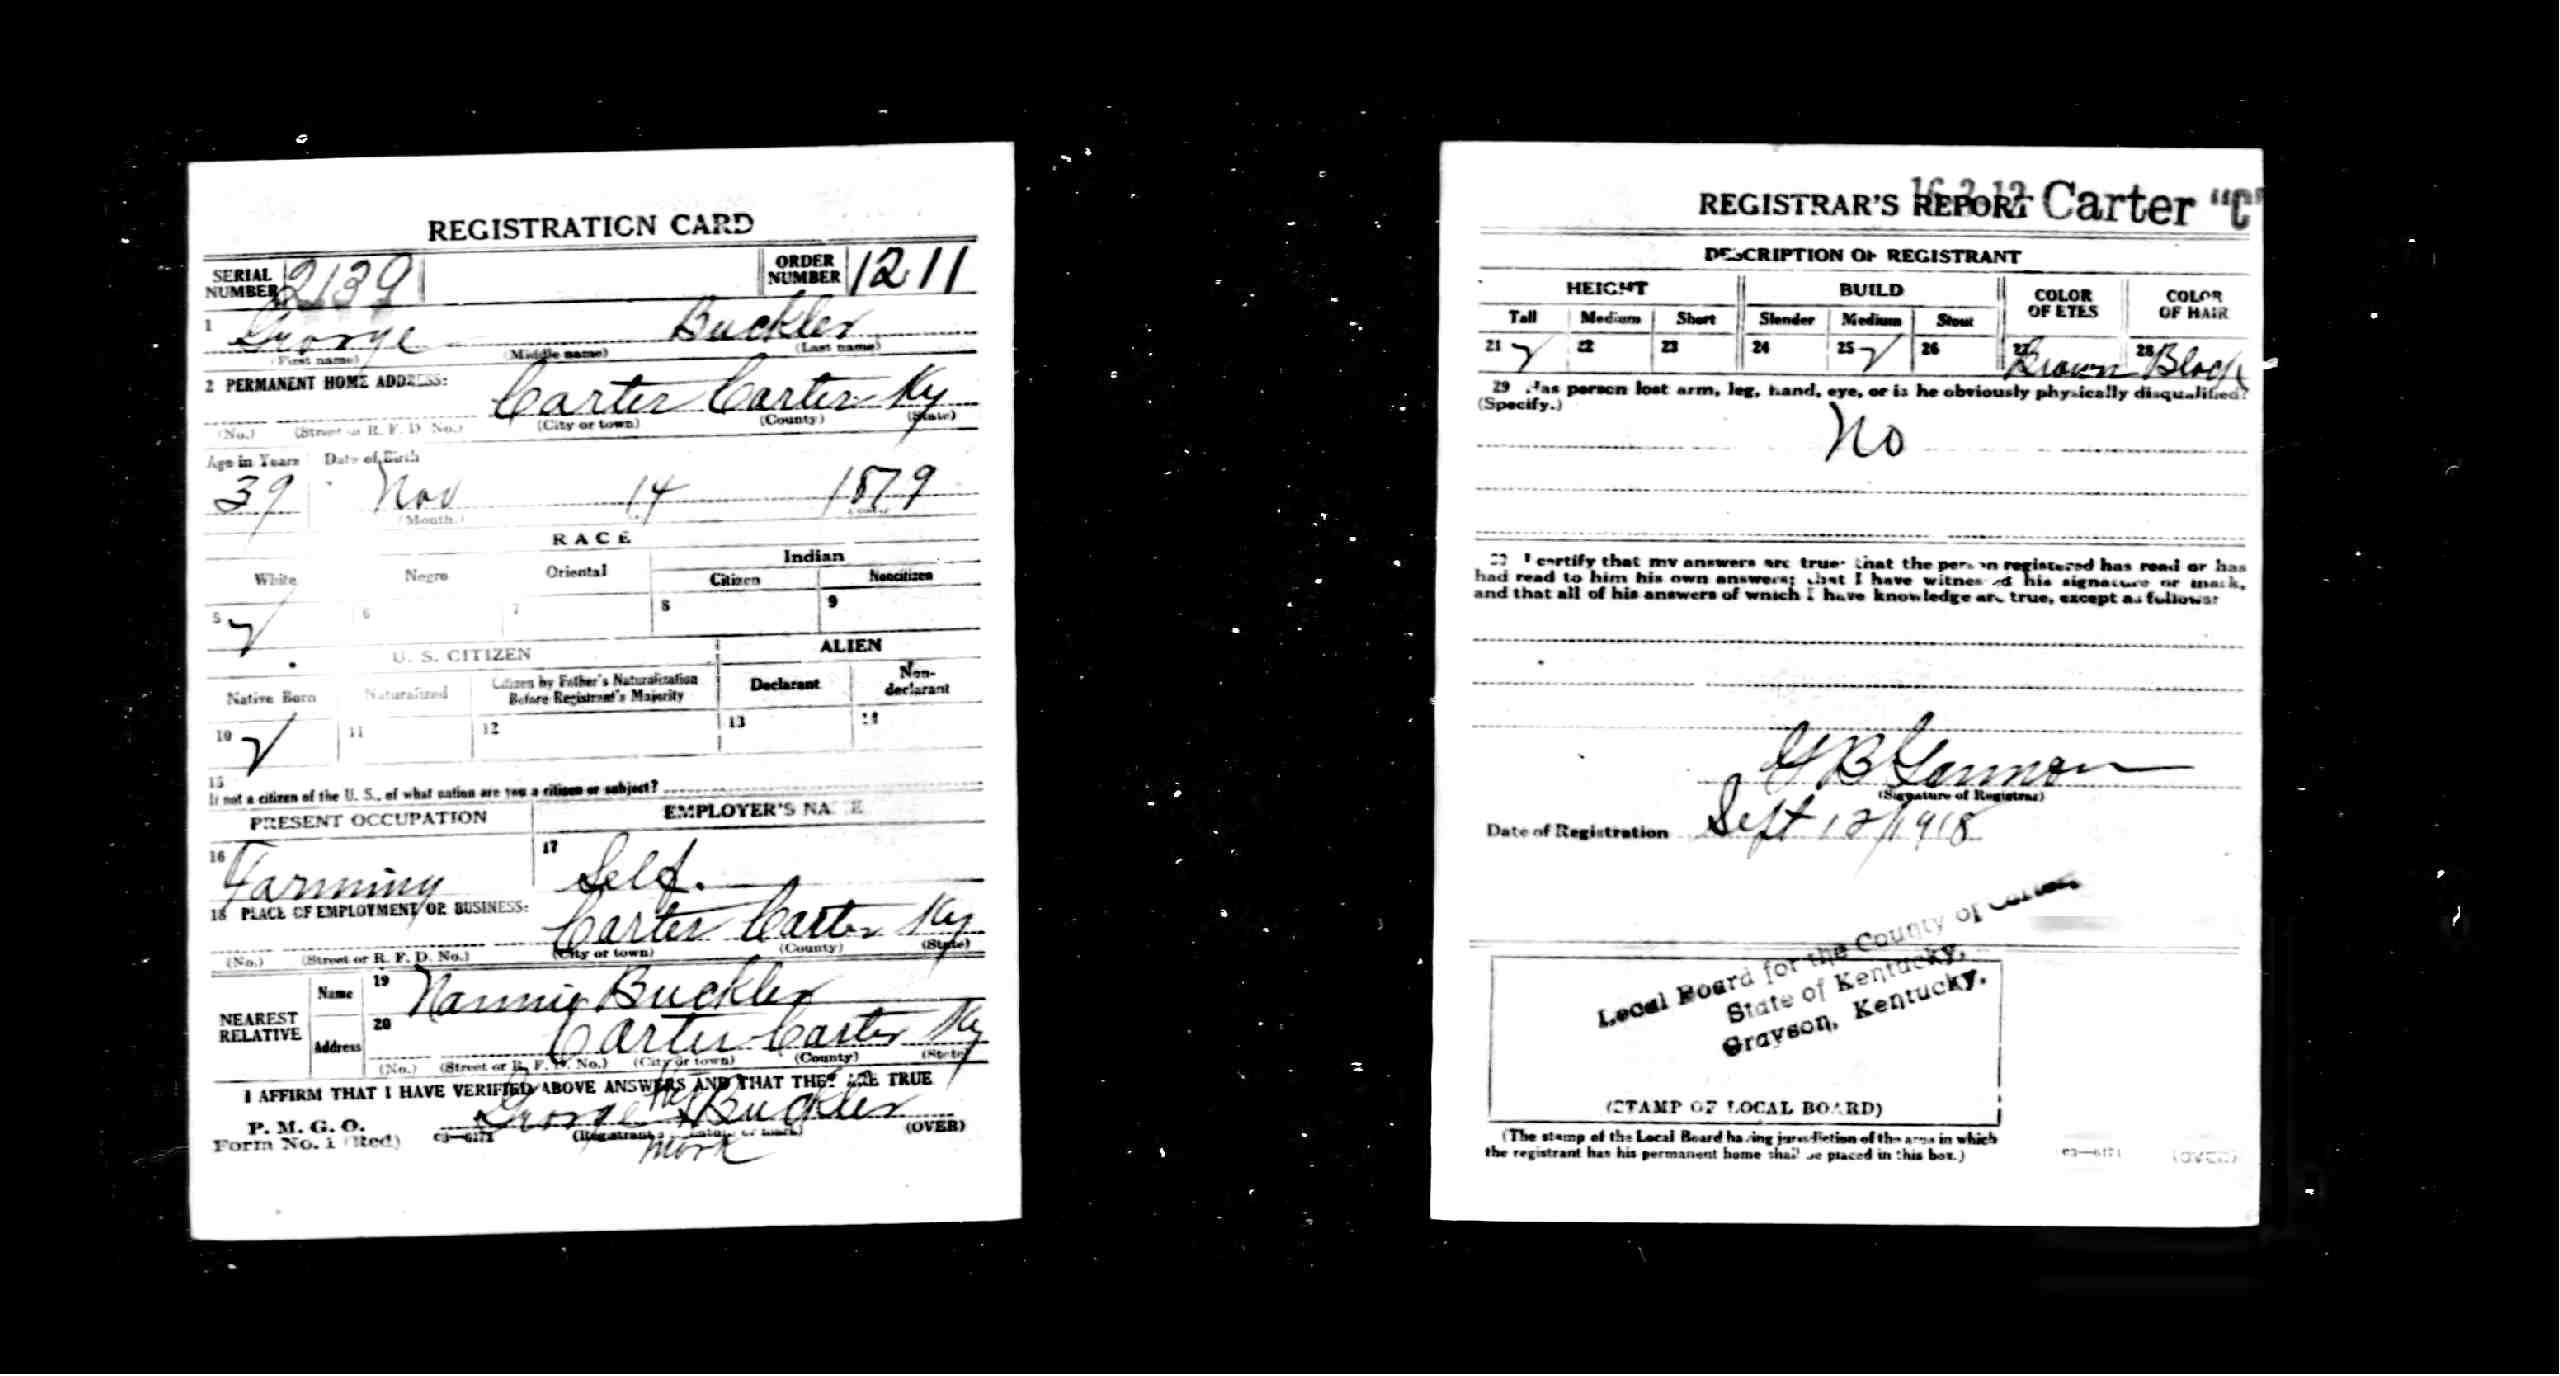 REGISTRATION CARD
SERIAL NUMBER 2139
ORDER NUMBER 1211
1 George Buckler
(First name) (Middle name) (Last name)
2 PERMANENT HOME ADDRESS:
Carter Carter Ky
(No.) (Street or R. F. D. No.) (City or town) (County) (State)
Age in Years Date of Birth
39 Nov 14 1879
(Month.)
RACE
White Negro Oriental Indian
Citizen Noncitizen
5 ✓ 6 7 8 9
U. S. CITIZEN ALIEN
Native Born Naturalized Citizen by Father's Naturalization Before Registrant's Majority Declarant Non-declarant
10 ✓ 11 12 13 14
15
If not a citizen of the U. S., of what nation are you a citizen or subject?
PRESENT OCCUPATION EMPLOYER'S NAME
16 Farming 17 Self.
18 PLACE OF EMPLOYMENT OR BUSINESS:
Carter Carter Ky
(No.) (Street or R. F. D. No.) (City or town) (County) (State)
NEAREST RELATIVE
Name 19 Nannie Buckler
Address 20 Carter Carter Ky
(No.) (Street or R. F. D. No.) (City or town) (County) (State)
I AFFIRM THAT I HAVE VERIFIED ABOVE ANSWERS AND THAT THEY ARE TRUE
his
George X Buckler
mark
P. M. G. O.
Form No. 1 (Red) 03—6171 (Registrant's signature or mark) (OVER)
REGISTRAR'S REPORT Carter "C"
DESCRIPTION OF REGISTRANT
HEIGHT BUILD COLOR OF EYES COLOR OF HAIR
Tall Medium Short Slender Medium Stout
21 ✓ 22 23 24 25 ✓ 26 27 Brown 28 Black
29 Has person lost arm, leg, hand, eye, or is he obviously physically disqualified?
(Specify.)
No
30 I certify that my answers are true; that the person registered has read or has
had read to him his own answers; that I have witnessed his signature or mark,
and that all of his answers of which I have knowledge are true, except as follows:
(Signature of Registrar)
Date of Registration Sept 12/1918
Local Board for the County of Carter,
State of Kentucky,
Grayson, Kentucky.
(STAMP OF LOCAL BOARD)
(The stamp of the Local Board having jurisdiction of the area in which
the registrant has his permanent home shall be placed in this box.)
03—6171 (OVER)